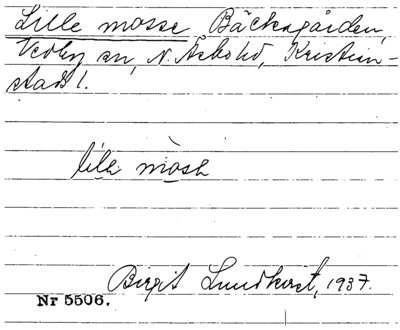 Lille mosse Bäcksgården,
Vedby sn, N. Åsbo hd, Kristian-
stads l.
lilə mosə
Birgit Lundkvist, 1937.
Nr 5506.